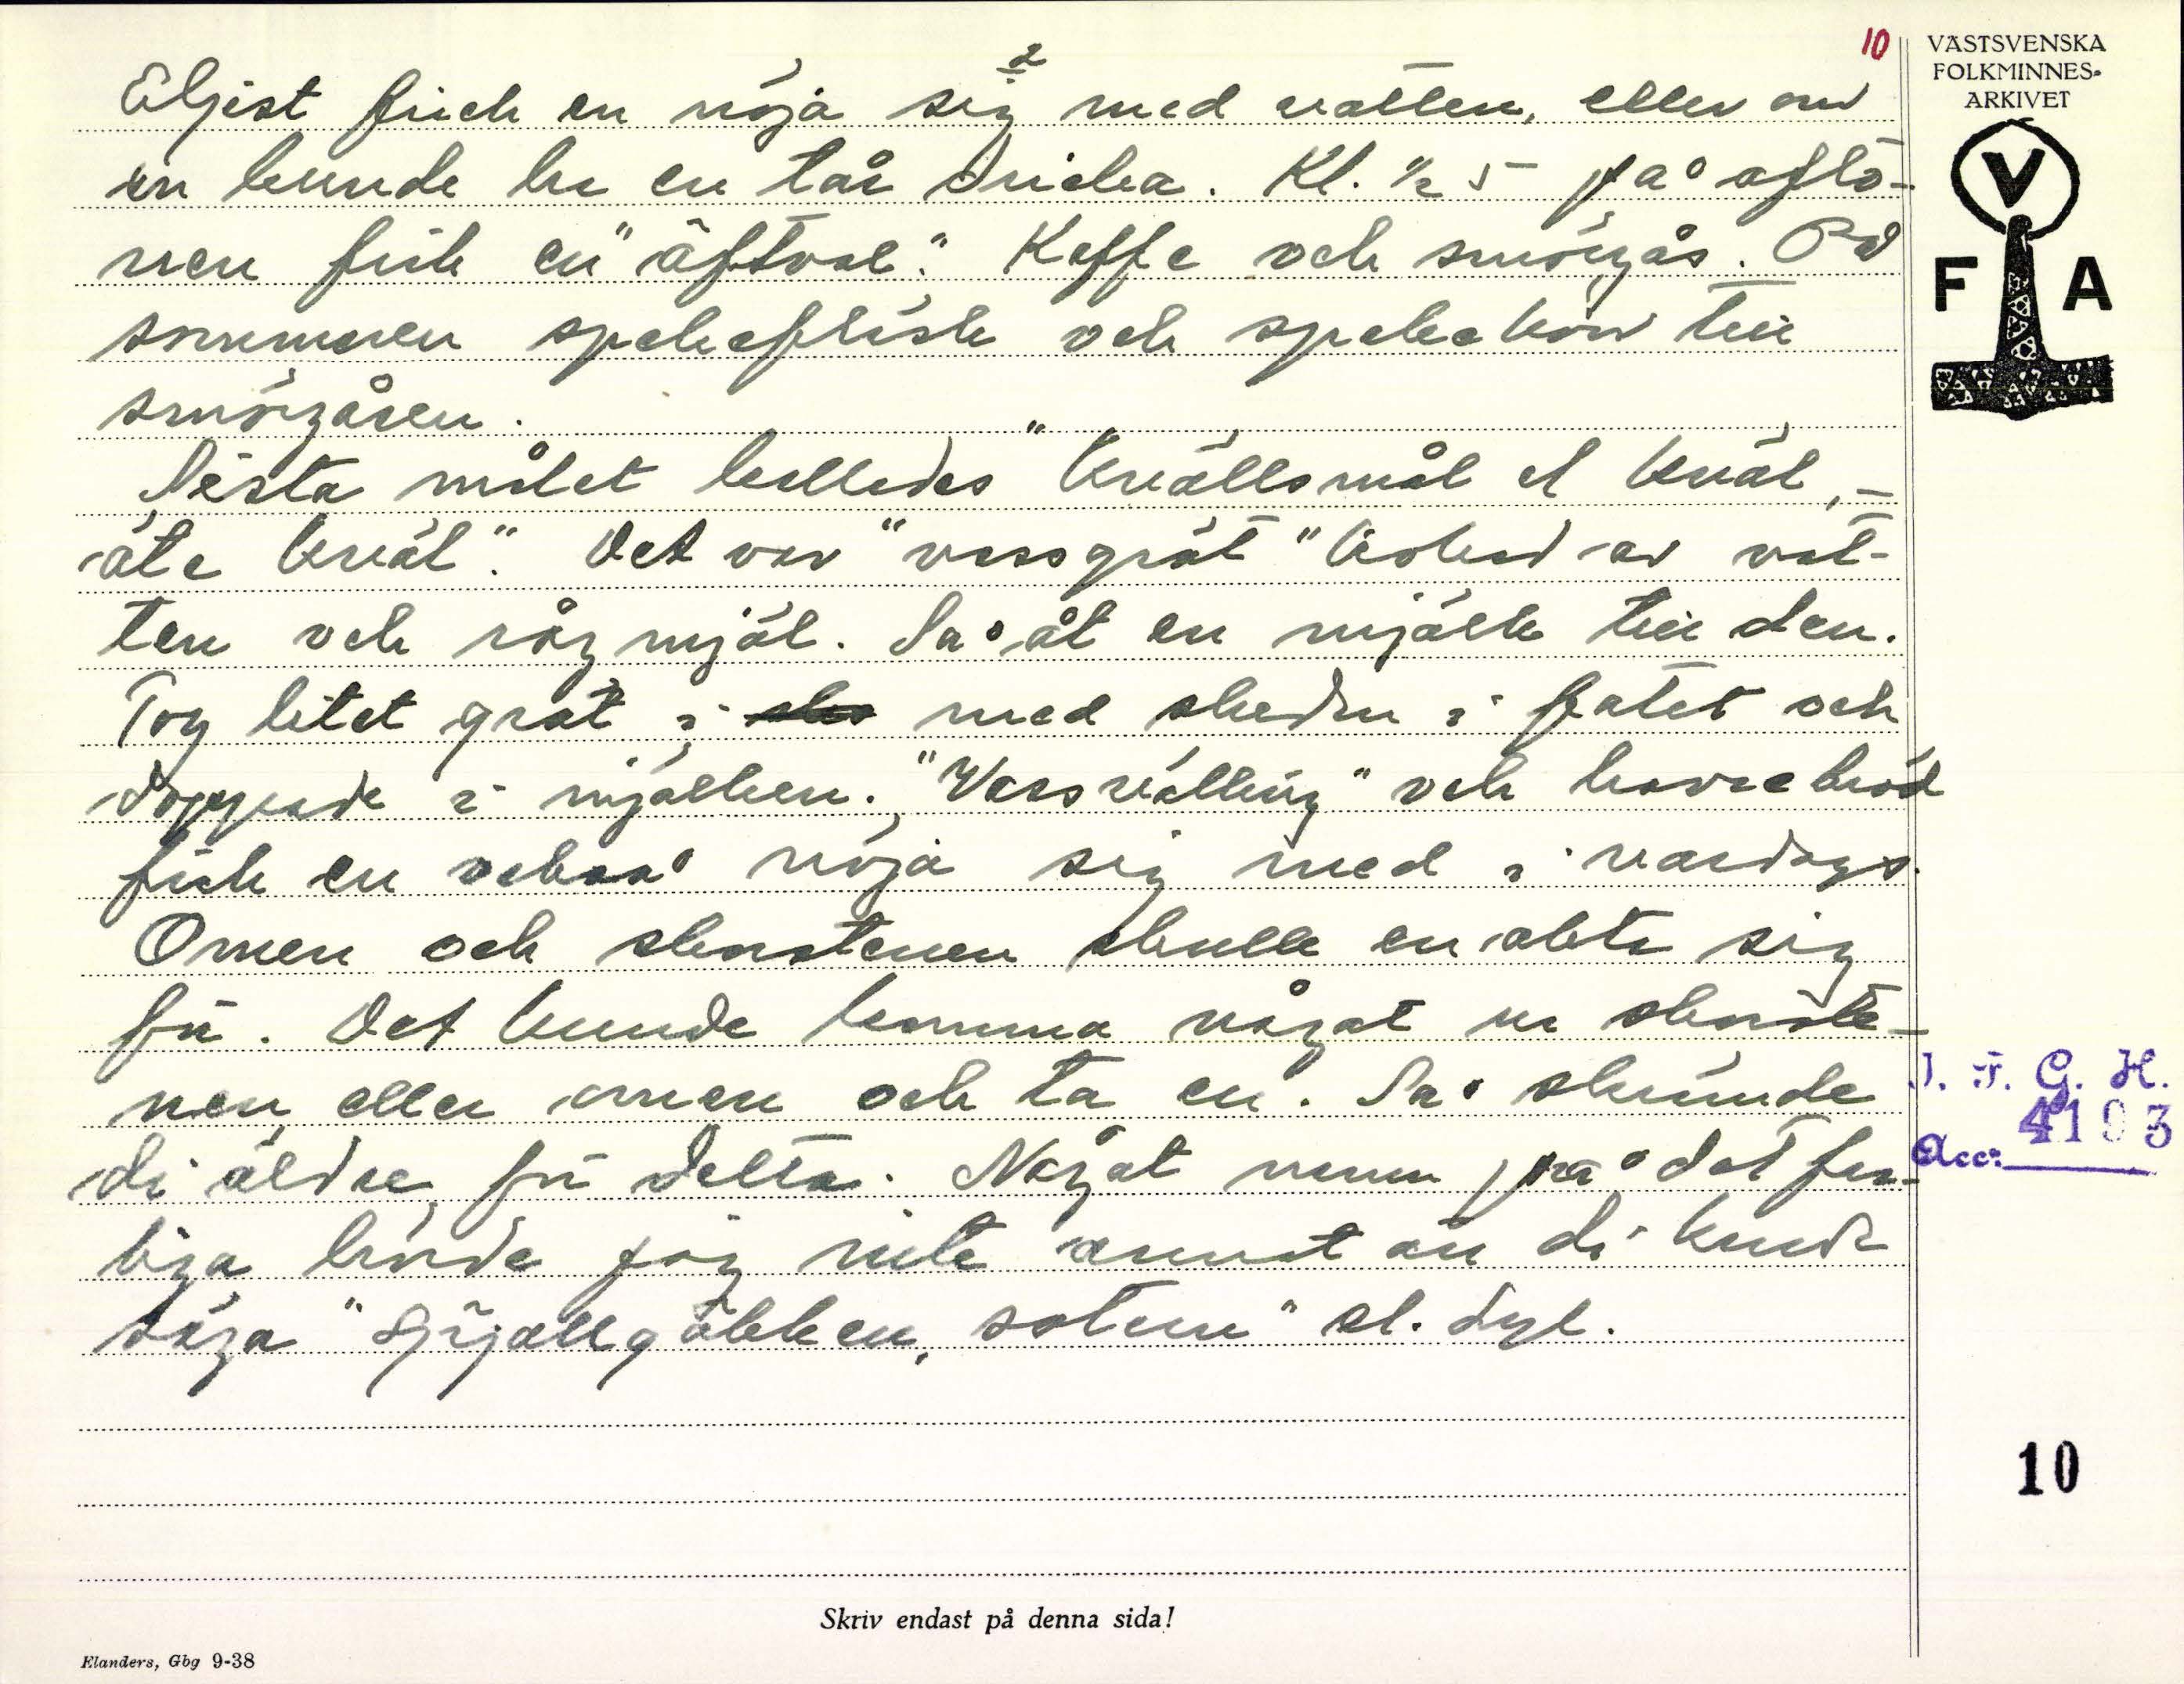 10
VÄSTSVENSKA
FOLKMINNES-
ARKIVET
V
F A
2
Eljest fick en nöja sig med vatten, eller om
en kunde ha en tår dricka. Kl. ½ 5 på aftö-
nen fick en "äftval". Kaffe och smörgås. På
sommaren spekefläsk och spekekörv till
smörgåsen.
Nästa målet kallades "kvällsmål el kväl, -
äte kväl". Det var "vassgröt" kokad av vat-
ten och rågmjöl. Så åt en mjölk till den.
Tog litet gröt i med skeden i fatet och
doppade i mjölken. "Vassvälling" och havrebröd
fick en också nöja sig med i vardags.
Omen och skorstenen skulle en akta sig
för. Det kunde komma något ur skorste-
nen eller omen och ta en. Så skrämde
di äldre för detta. Något namn på det far-
liga hörde jag inte annat än di kunde
säga "Spjällgubben, soten" el. dyl.
J. F. G. H.
Acc: 4193
10
Skriv endast på denna sida!
Elanders, Gbg 9-38